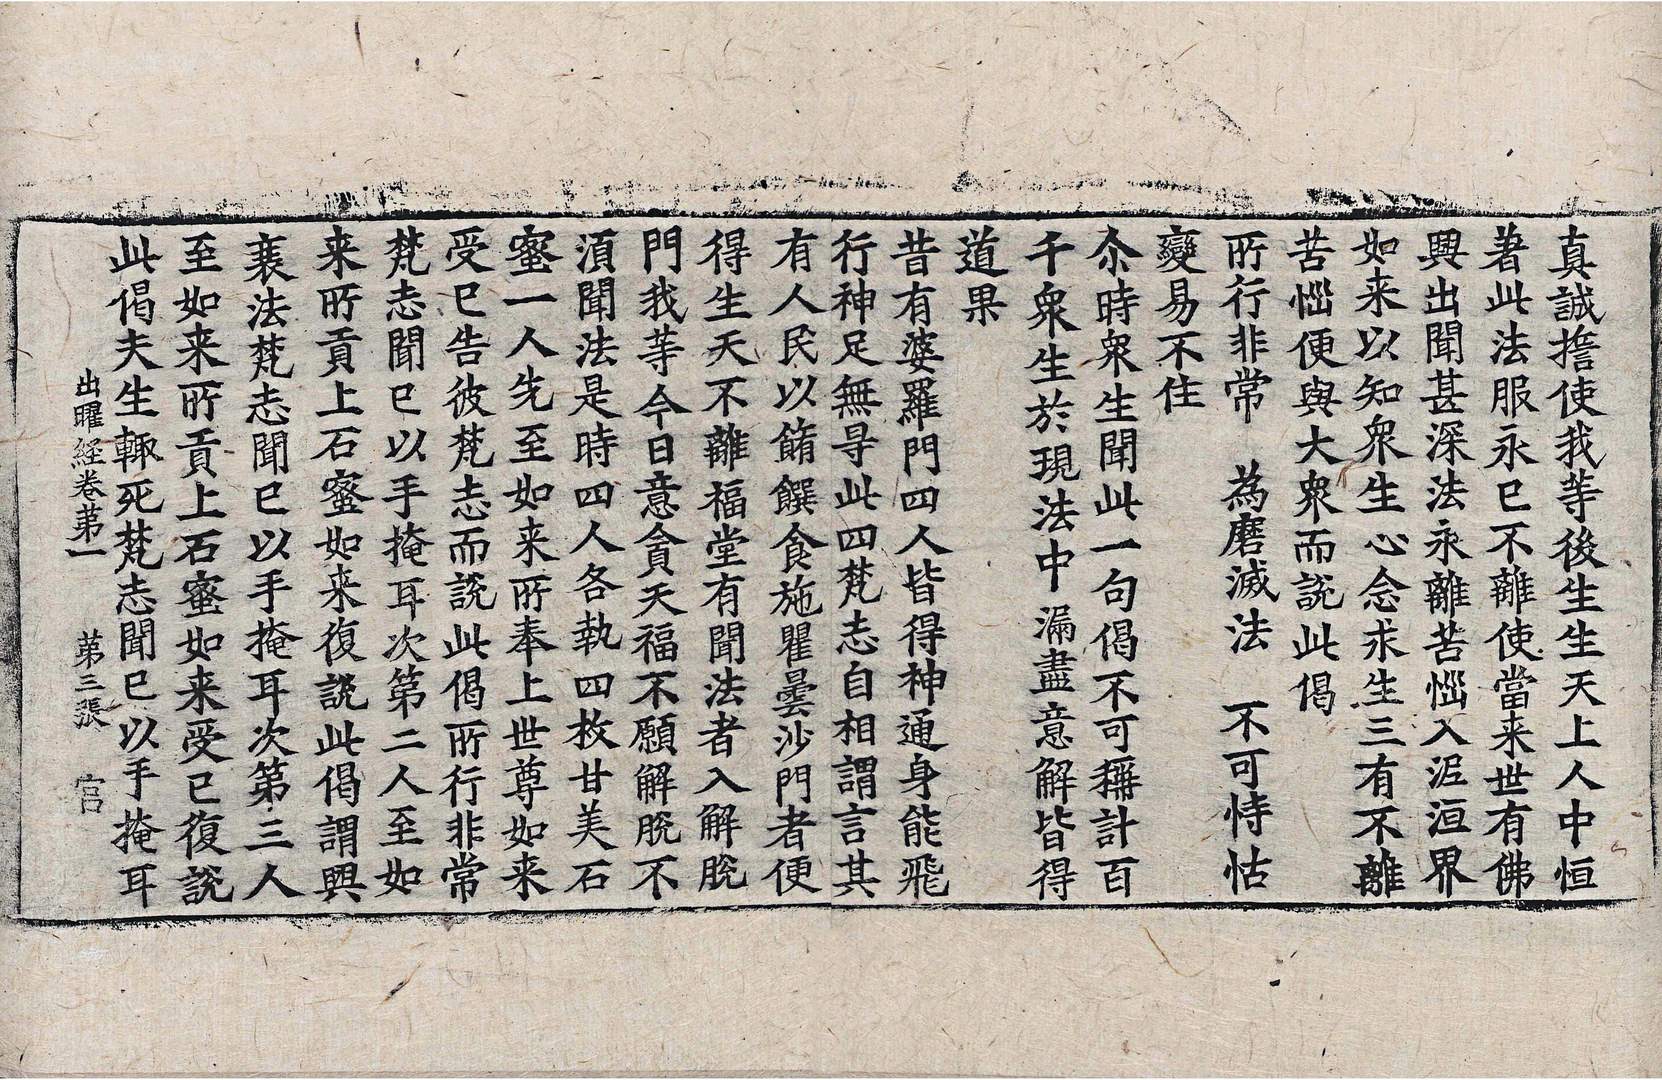 真誠擔使我等後生生天上人中恒
著此法服永已不離使當来世有佛
興出聞甚深法永離苦惱入泥洹界
如来以知衆生心念求生三有不離
苦惱便與大衆而説此偈
所行非常　為磨滅法　不可恃怙
變易不住
尒時衆生聞此一句偈不可稱計百
千衆生於現法中漏盡意解皆得
道果
昔有婆羅門四人皆得神通身能飛
行神足無㝵此四梵志自相謂言其
有人民以餚饌食施瞿曇沙門者便
得生天不離福堂有聞法者入解脫
門我等今日意貪天福不願解脫不
湏聞法是時四人各執四枚甘美石
蜜一人先至如来所奉上世尊如来
受已告彼梵志而説此偈所行非常
梵志聞已以手掩耳次第二人至如
来所貢上石蜜如来復説此偈謂興
衰法梵志聞已以手掩耳次第三人
至如来所貢上石蜜如来受已復説
此偈夫生輙死梵志聞已以手掩耳
出曜経卷苐一　苐三張　官